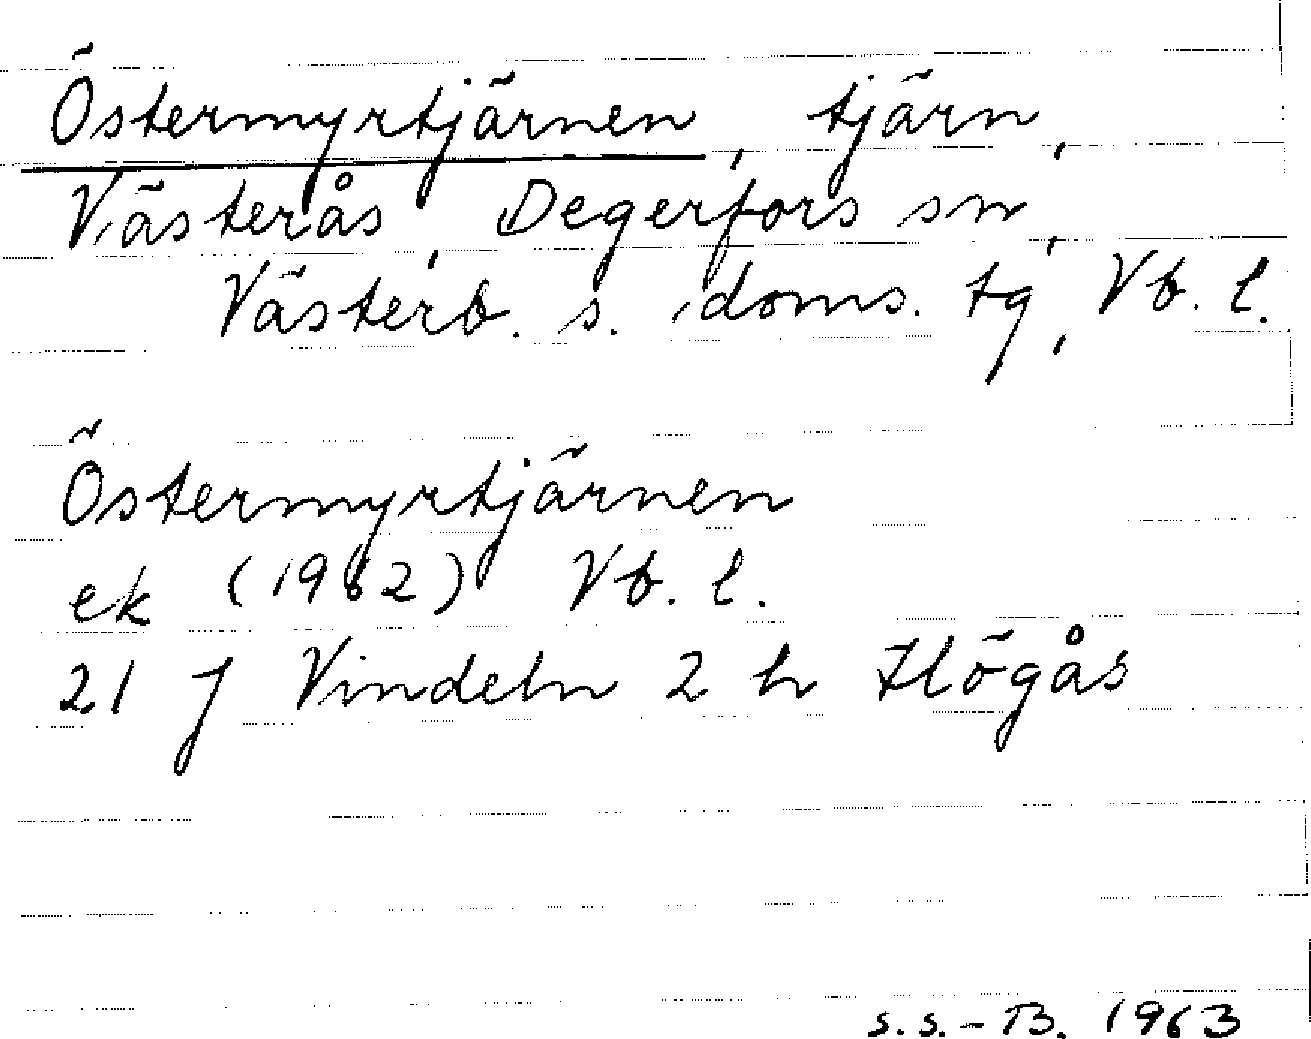 Östermyrtjärnen, tjärn,
Västerås, Degerfors sn,
Västerb. s. doms. tg, Vb. l.
Östermyrtjärnen
ek (1962) Vb. l.
21 J Vindeln 2 h Högås
s.s.-B. 1963